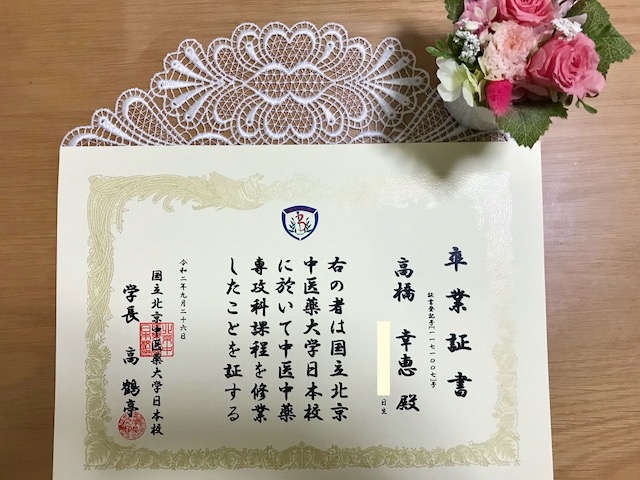 卒業証書
証書登記号(一一七一〇〇七)号
高橋 幸恵 殿
日生
右の者は国立北京
中医薬大学日本校
に於いて中医中薬
専攻科課程を修業
したことを証する
令和二年九月二十六日
国立北京中医薬大学日本校
学長 高鶴亭